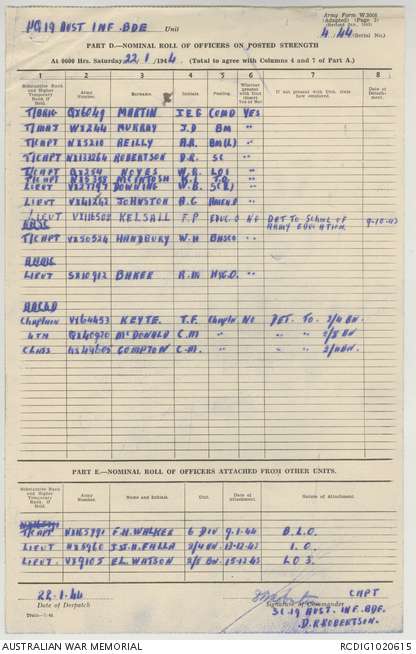 HQ 19 AUST INF. BDE Unit
Army Form W.3008
(Adapted) (Page 2)
4.44 (Serial No.)
PART D.—NOMINAL ROLL OF OFFICERS ON POSTED STRENGTH
At 0600 Hrs. Saturday 22/1/1944 (Total to agree with Columns 4 and 7 of Part A.)
Substantive Rank and Higher Temporary Rank if Held Army Number. Surname. Initials Posting. Whether present with Unit (insert Yes or No) If not present with Unit, state how employed. Date of Detachment.
1 2 3 4 5 6 7 8
T/BRIG MARTIN J.E.G COMD YES
T/MAJ VX244 MURRAY J.D BM "
T/CAPT NX5210 REILLY A.R. BM(L) "
T/CAPT NX133264 ROBERTSON D.R. SC "
T/CAPT QX254 NOYES W.R. LO1 "
T/CAPT MCINTOSH "
LIEUT VX27797 DOWNING W.B. "
LIEUT VX41242 JOHNSTON A.G "
LIEUT VX116502 KELSALL F.P EDUC.O NO DET TO SCHOOL OF ARMY EDUCATION 9-10-43
AASC
T/CAPT VX50524 HANDBURY W.H BASCO "
LIEUT SX10912 BAKER R.M HYG.O "
Chaplain VX64453 KEYTE T.F. Chapln NO DET. TO 2/4 BN.
QX40920 McDONALD C.M " " " " 2/8 BN
COMPTON C.M. " " " " 2/11 BN.
PART E.—NOMINAL ROLL OF OFFICERS ATTACHED FROM OTHER UNITS.
Substantive Rank and Higher Temporary Rank if Held Army Number. Name and Initials. Unit. Date of Attachment. Nature of Attachment.
1 2 3 4 5 6
T/CAPT F.H. WALKER 6 DIV 9-1-44 B.L.O.
LIEUT FALLA 2/4 BN 13-12-43 I.O.
LIEUT. VX9105 E.L. WATSON 2/8 BN 15-12-43 LO3.
22-1-44
Date of Despatch
CAPT
Signature of Commander
SC. 19 AUST. INF. BDE.
D.R. ROBERTSON.
AUSTRALIAN WAR MEMORIAL RCDIG1020615